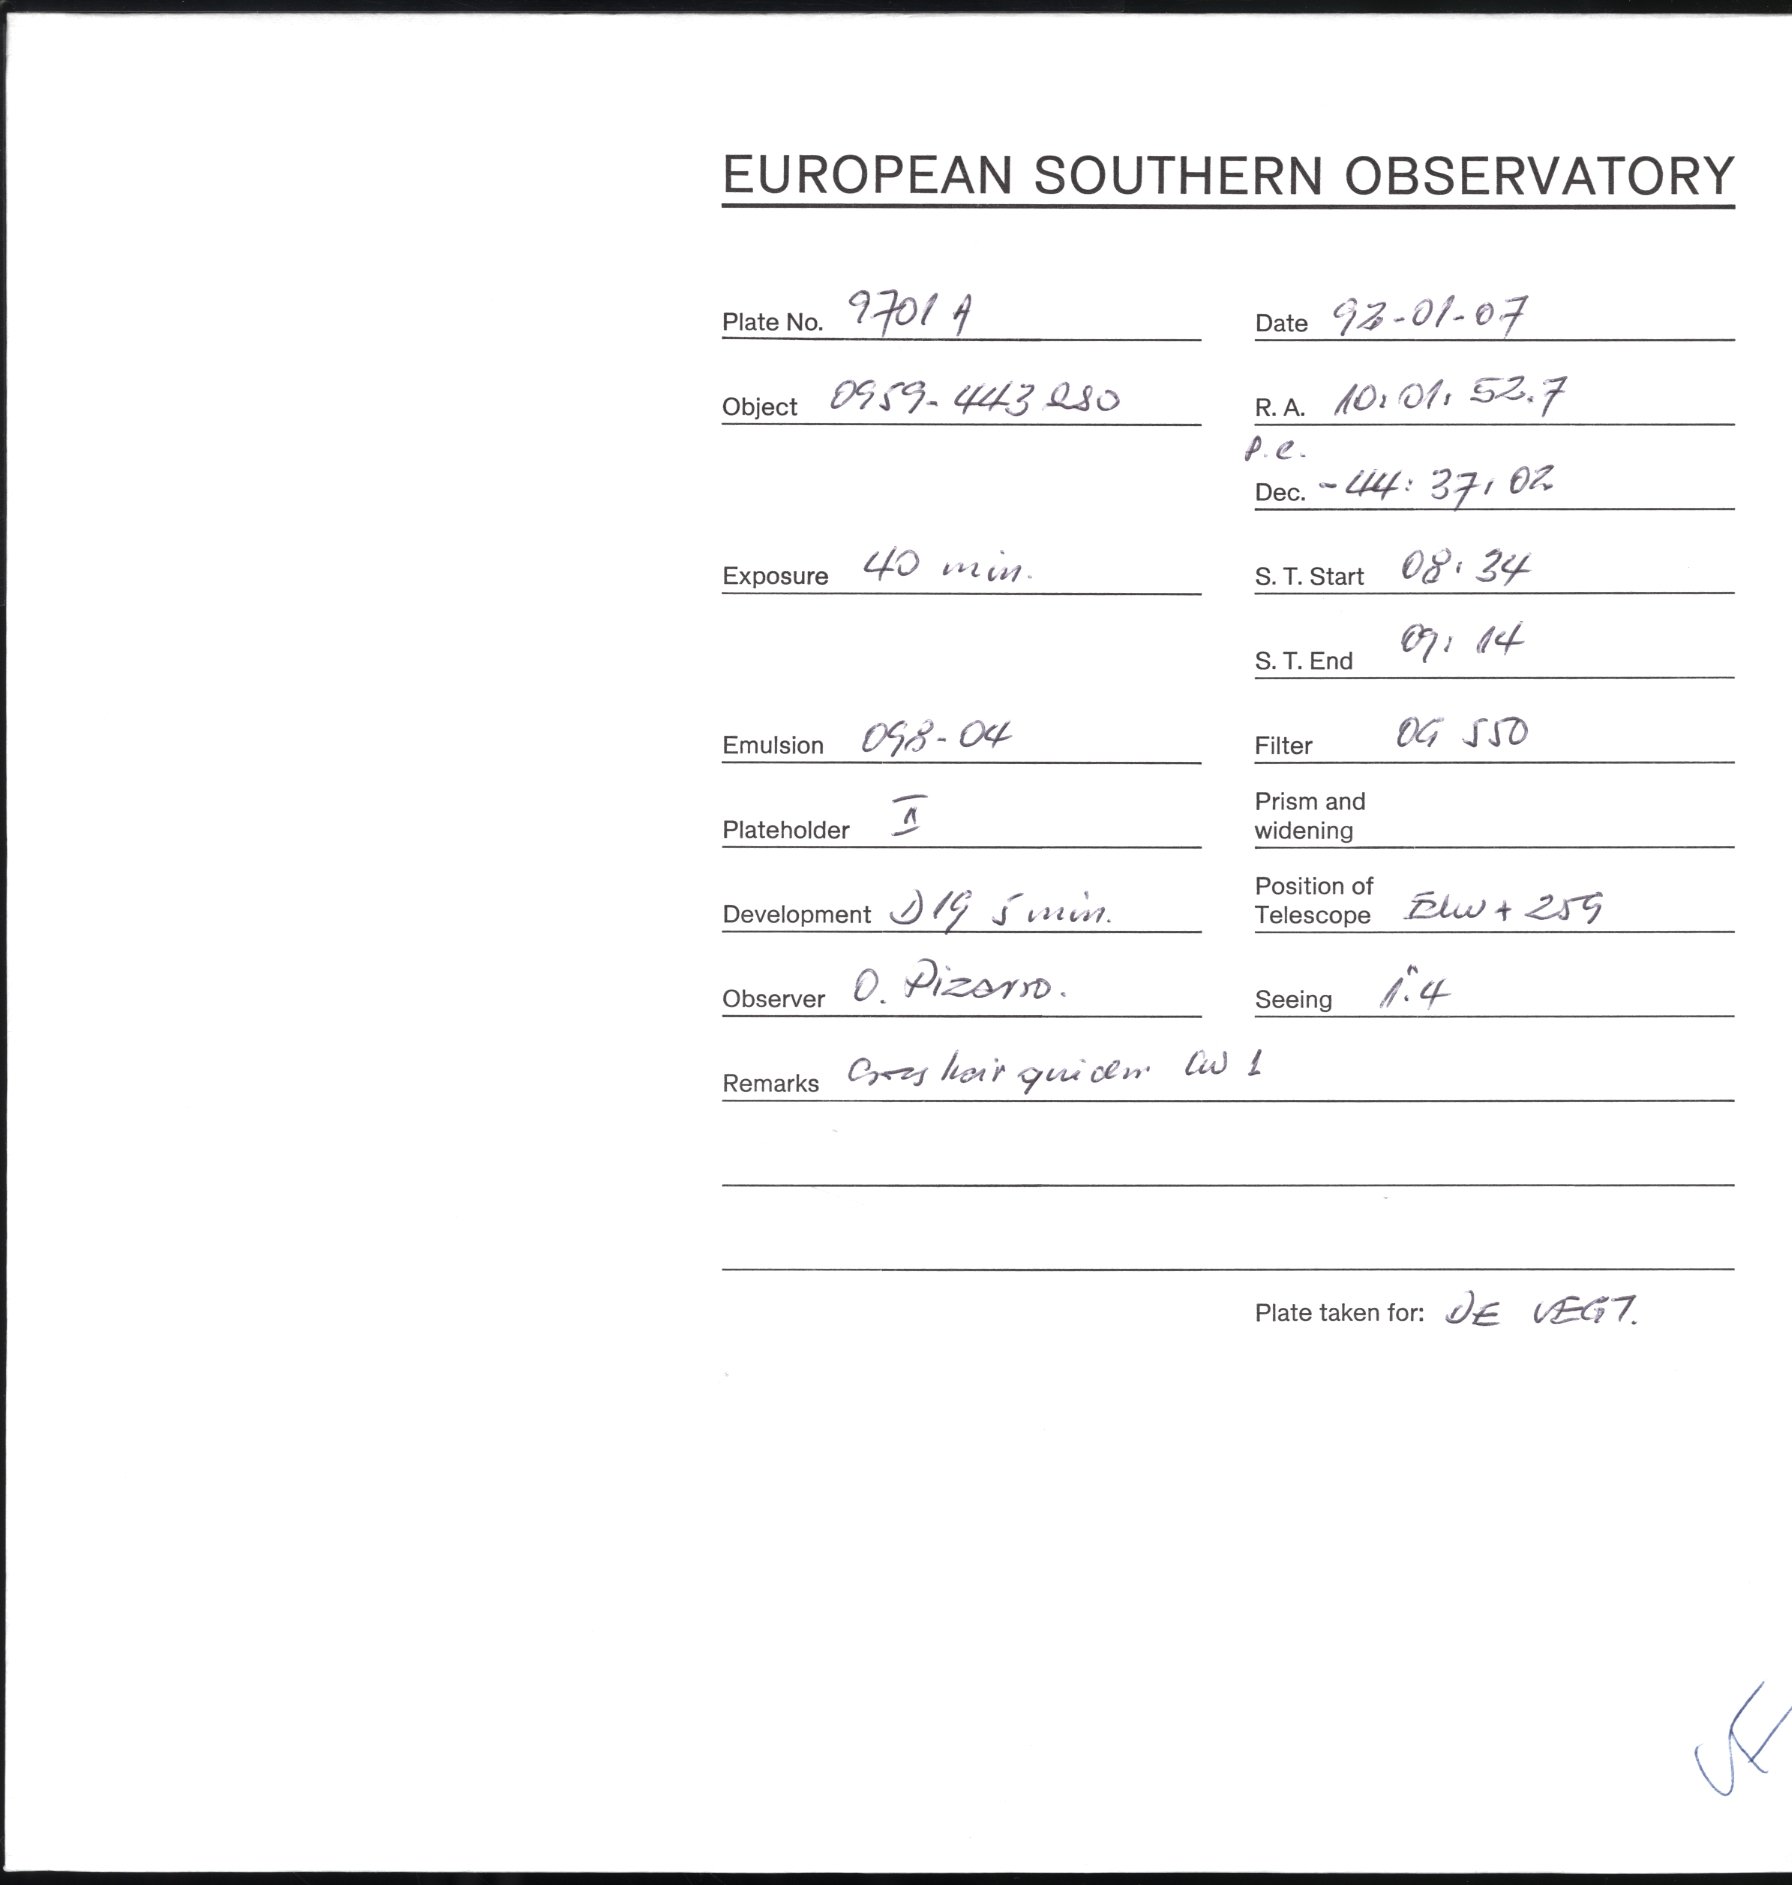 EUROPEAN SOUTHERN OBSERVATORY
Plate No. 9701 A
Date 92-01-07
Object 0959-443 QSO
R. A. 10:01:52.7
P.C.
Dec. -44:37:02
Exposure 40 min.
S. T. Start 08:34
S. T. End 09:14
Emulsion 098-04
Filter OG 550
Plateholder II
Prism and
widening
Development D19 5 min.
Position of
Telescope + 259
Observer O. Pizarro.
Seeing 1".4
Remarks Cross hair 1
Plate taken for: DE VEGT.